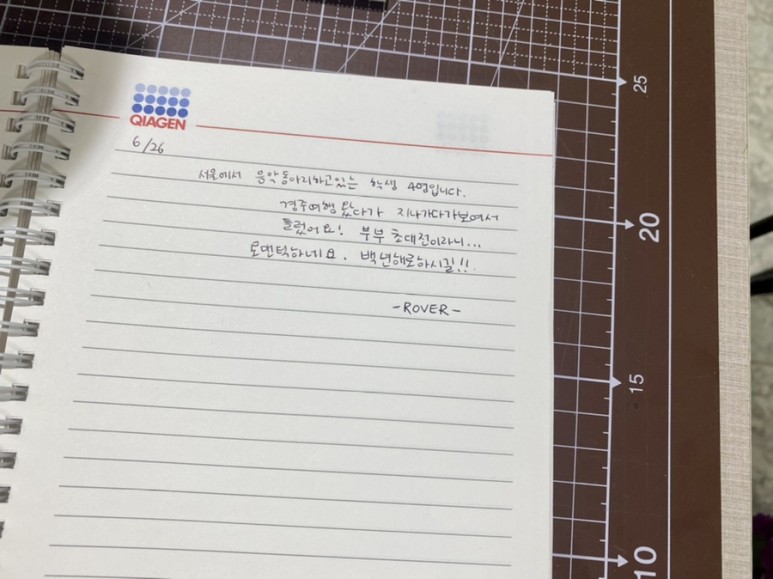 QIAGEN
6/26
서울에서 음악동아리하고있는 학생 4명입니다.
경주여행 왔다가 지나가다가보여서
들렀어요! 부부 초대전이라니...
로맨틱하네요. 백년해로하시길!!
-ROVER-
25
20
15
10